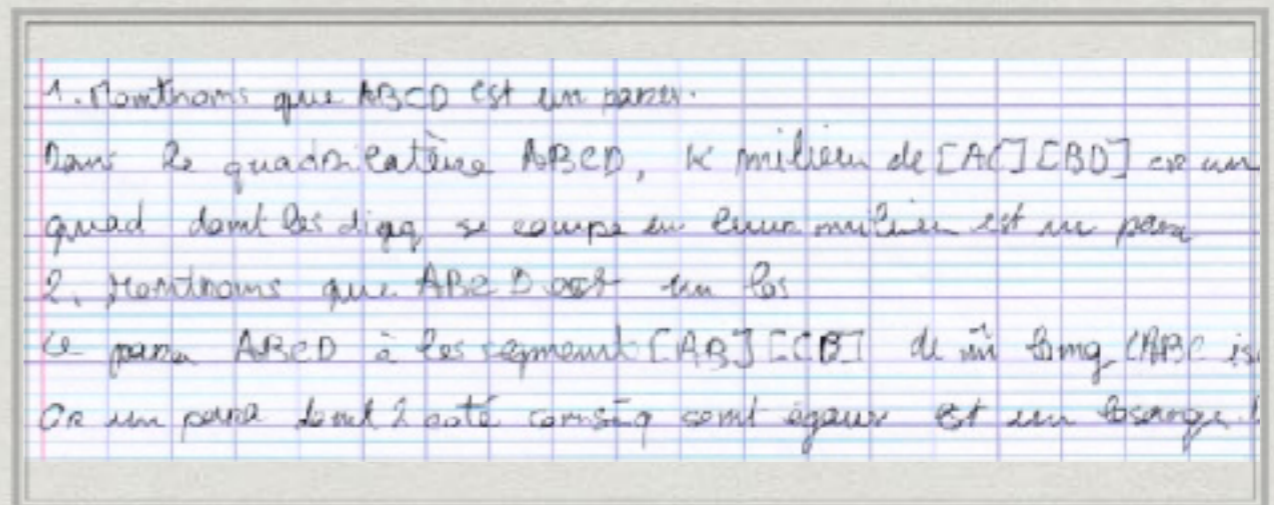 1. Montrons que ABCD est un para.
Dans le quadrilatère ABCD, K milieu de [AC] [BD] or un
quad dont les diag se coupe en leur milieu est un para
2. Montrons que ABCD est un los
Le para ABCD à les segment [AB] [CB] de m̂ long (ABC is
Or un para dont 2 coté conséq sont égaux est un losange.